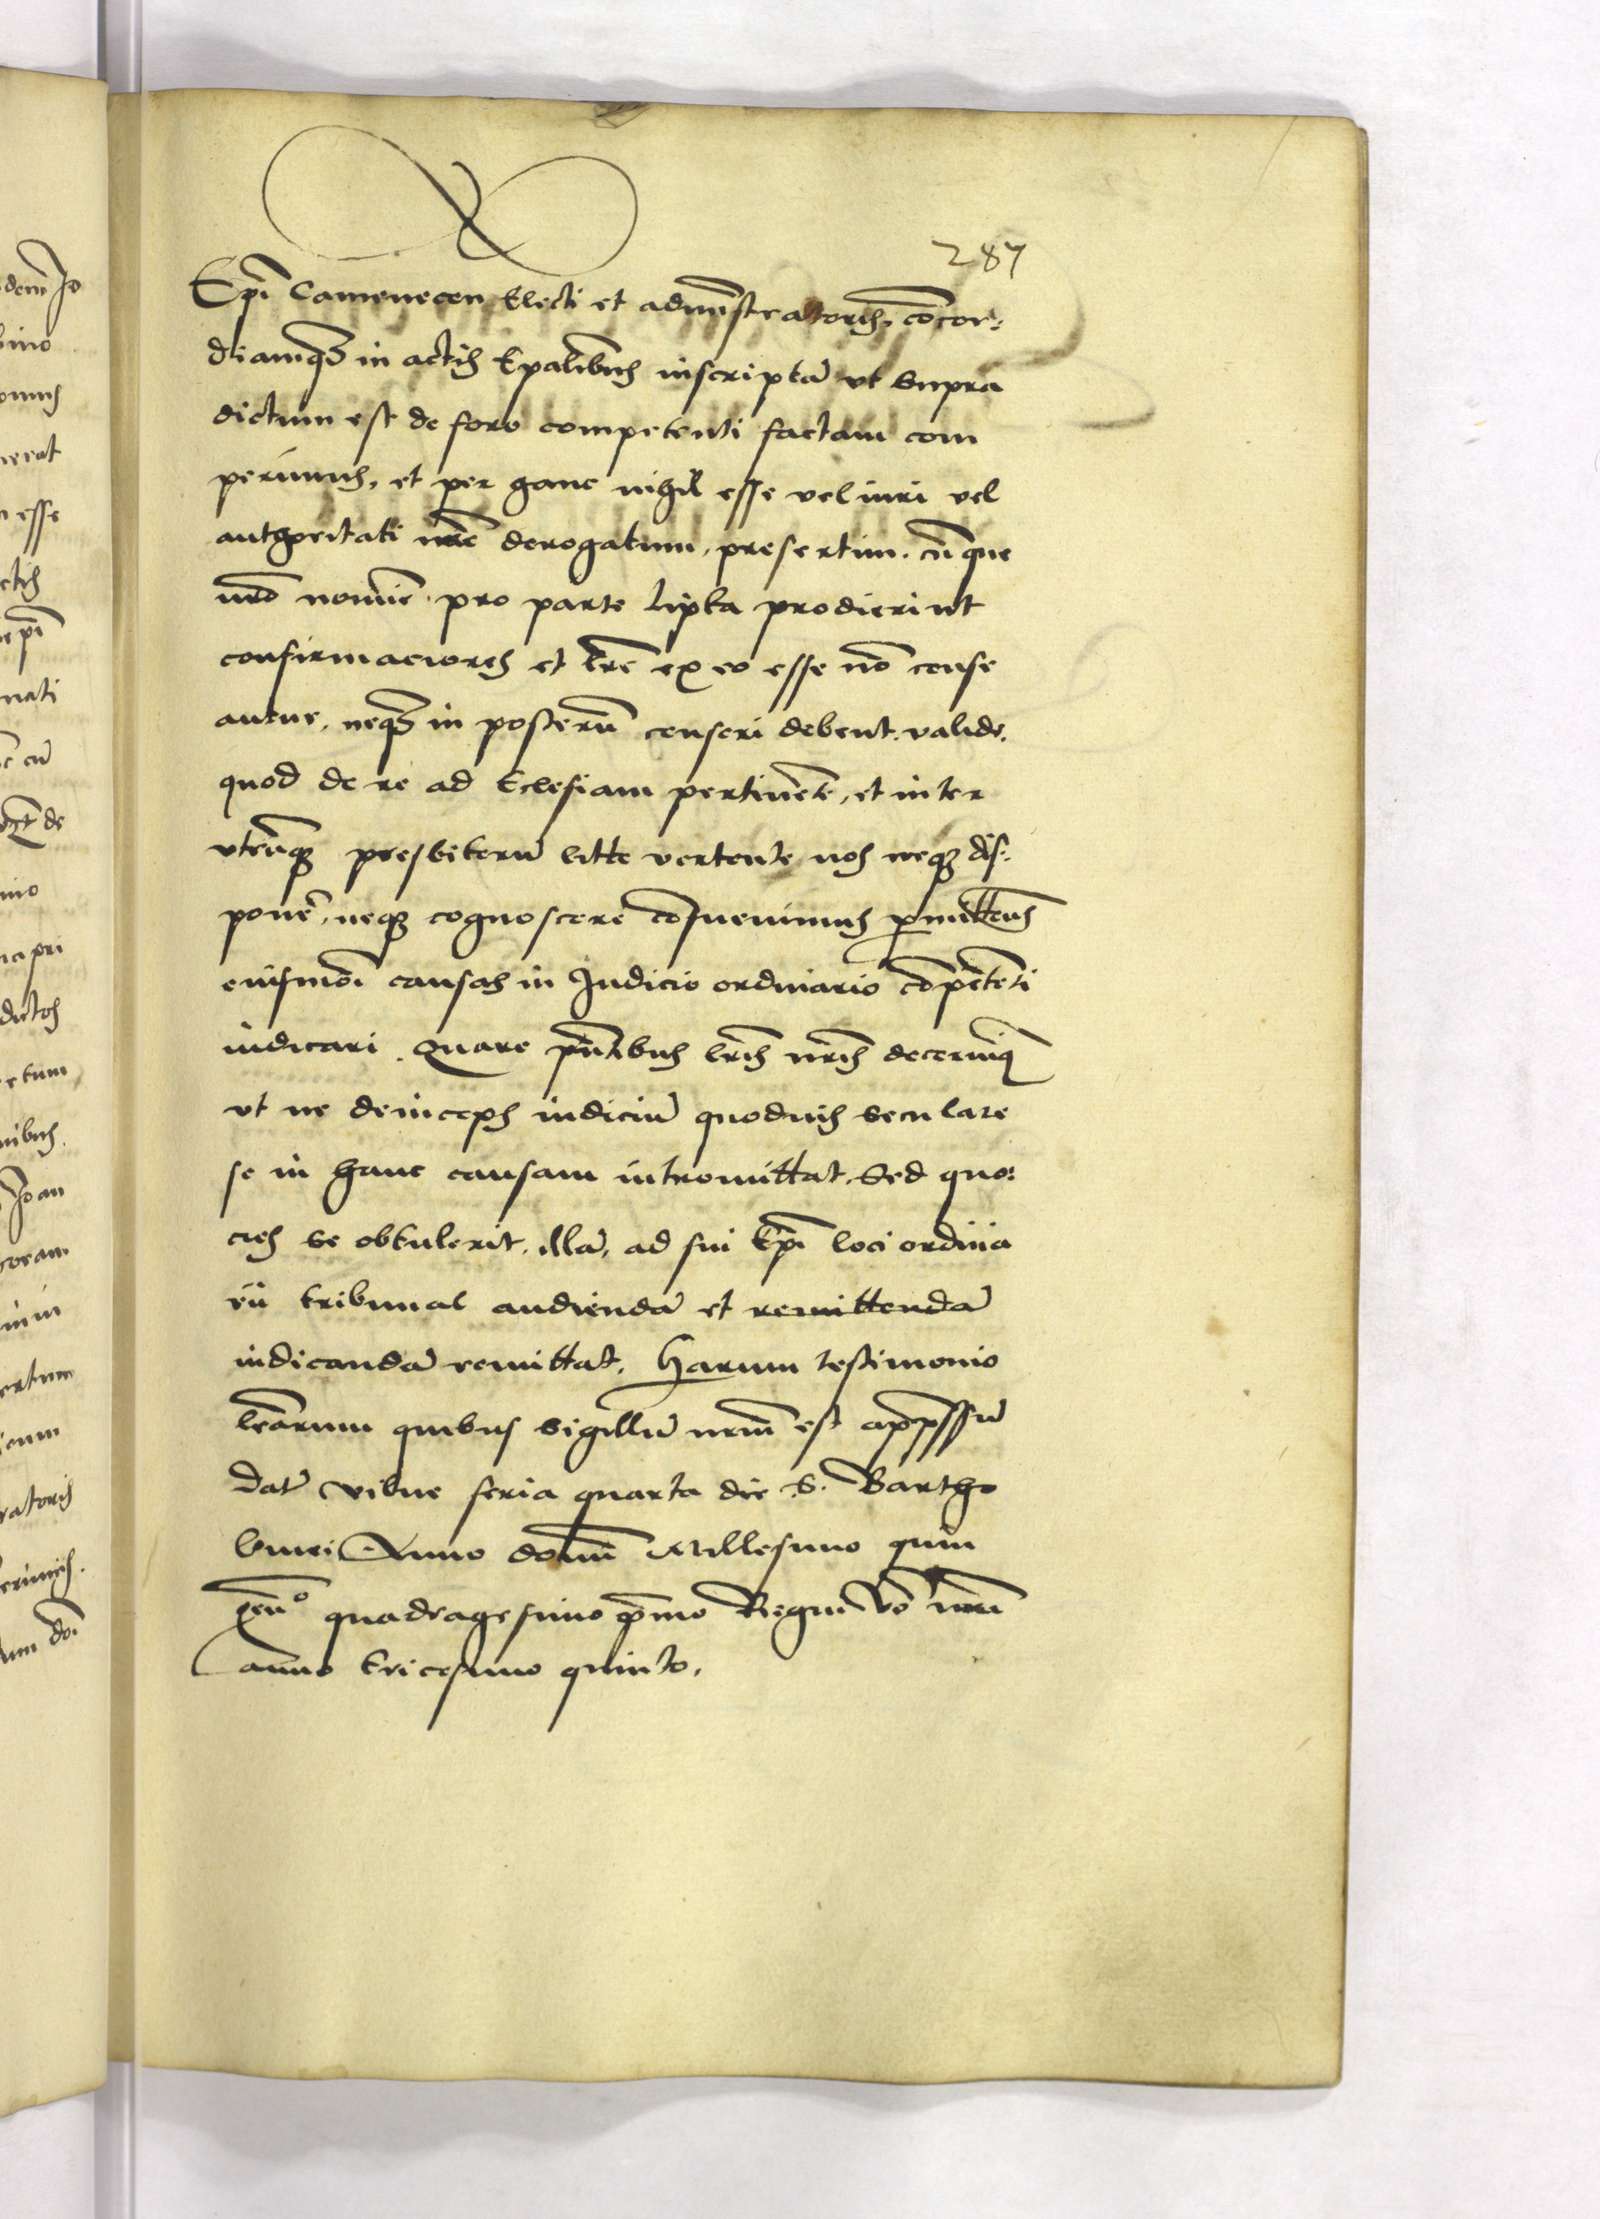 287
Epi Camenecen Electi et administratoris, concor:
diamq3 in actis Epalibus inscripta ut supra
dictum est de foro competenti factam com
perimus, et per hanc nihil esse vel iuri vel
authoritati nre derogatum, presertim. cu que
nro nomine pro parte Lipka prodierint
confirmaciones et lre ex eo esse no conse
antur, neq3 in posteru censeri debent. valide,
quod de re ad Eclesiam pertinete, et inter
utrunq3 presbiteru litte vertente nos neq3 dis:
ponere, neq3 cognoscere consuevimus permittemus
eiusmoi causas in Judicio ordinario competeti
iudicari. Quare pntibus lris nris decernimus
ut ne deinceps iudiciu quodvis seculare
se in hanc causam intromittat, Sed quo:
cies se obtulerit, illa, ad sui Epi loci ordina
riu tribunal audienda et remittenda
iudicanda remittat, Harum testimonio
lrarum quibus sigillu nrum est appssu
Dat Vilne feria quarta die S. Bartho
lomei Anno domini Millesimo quin
gen° quadragesimo primo Regni vo nri
anno tricesimo quinto,